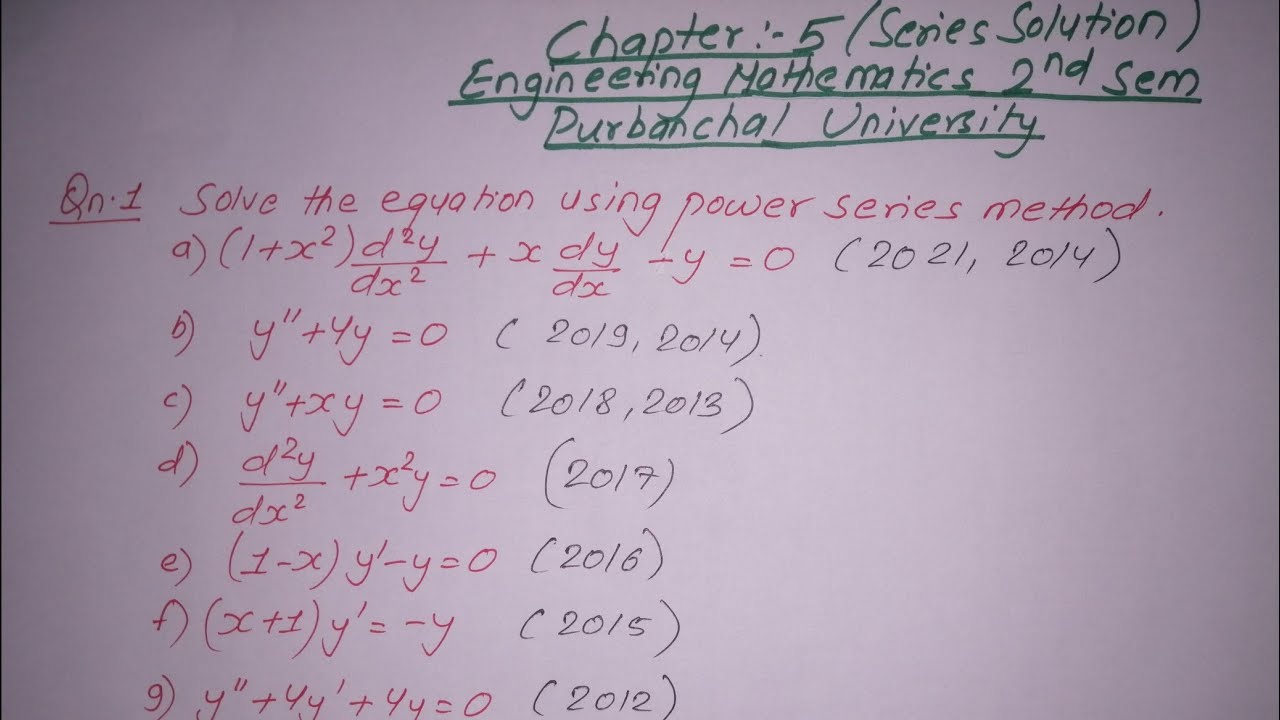 Chapter:- 5 (Series Solution)
Engineering Mathematics 2nd Sem
Purbanchal University
Qn.1 Solve the equation using power series method.
a) (1+x²) d²y/dx² + x dy/dx - y = 0 (2021, 2014)
b) y″+4y = 0 (2019, 2014).
c) y″+xy = 0 (2018, 2013)
d) d²y/dx² + x²y = 0 (2017)
e) (1-x) y′-y = 0 (2016)
f) (x+1) y′ = -y (2015)
g) y″+4y′+4y = 0 (2012)